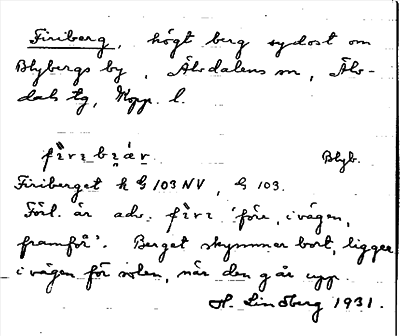 Firiberg, högt berg sydost om
Blybergs by, Älvdalens sn, Älv-
dals tg, Kopp. l.
fìrɪbɪ̯ær Blyb.
Firiberget k G 103 NV, G 103.
Förl. är adv. fìrɪ 'före, i vägen,
framför'. Berget skymmer bort, ligger
i vägen för solen, när den går upp.
H. Lindberg 1931.